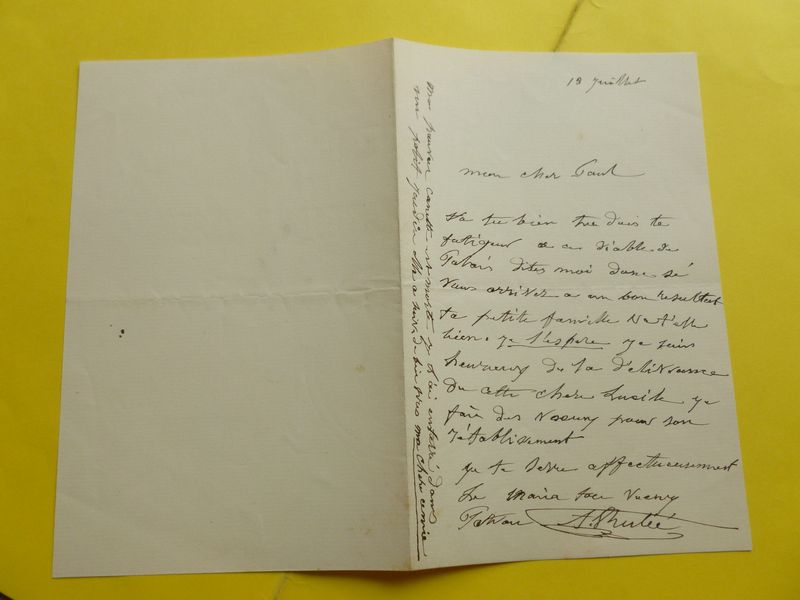 18 Juillet
mon cher Paul
Va tu bien tu dois te
fatiguer a ce diable de
Palais dites moi donc sé
vous arrivez a un bon resultat
ta petite famille Va t'elle
bien. je l'espere je suis
heureux de la délivrance
de cette chere Lucile je
fais des Voeux pour son
rétablisement
je te serre affectueusement
La main ton vieux
Patron
Ma pauvre est morte je l'ai enterré dans
mon petit jardin elle a ma chere amie